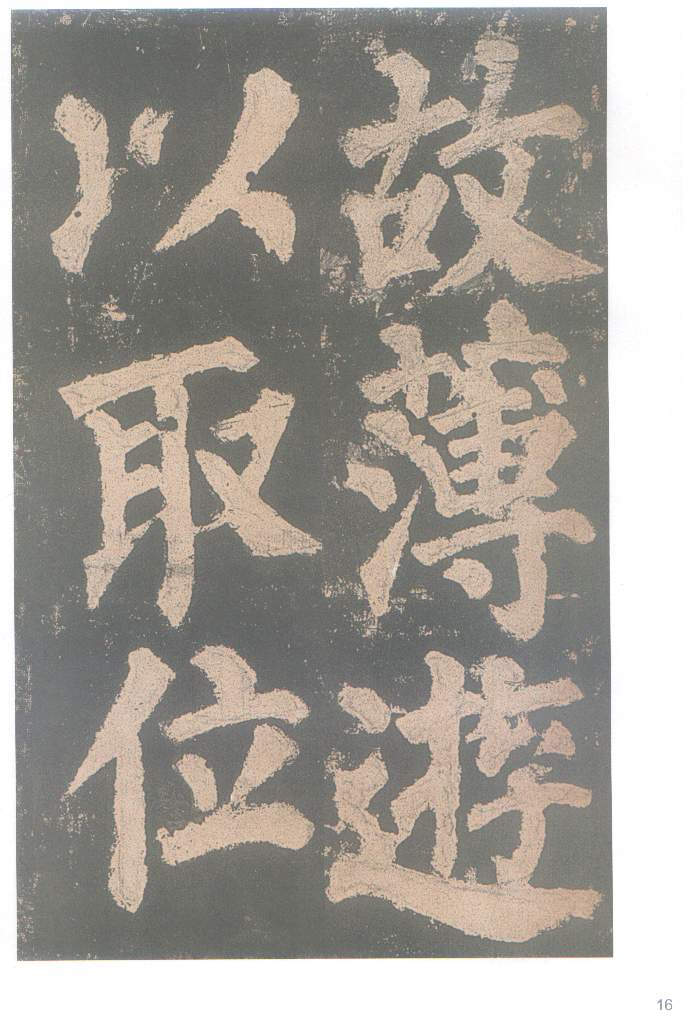 故薄遊
以取位
16